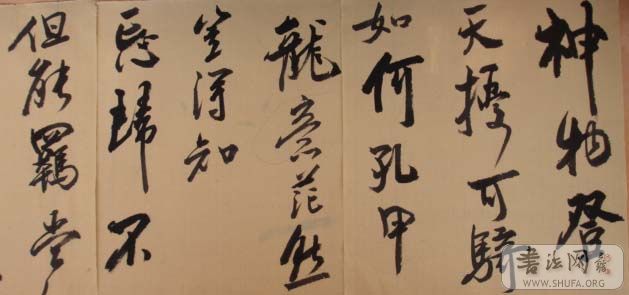 神物登
天擾可騎
如何孔甲
龍意茫然
豈得知
歸不
但能羈當
書法网
WWW.SHUFA.ORG